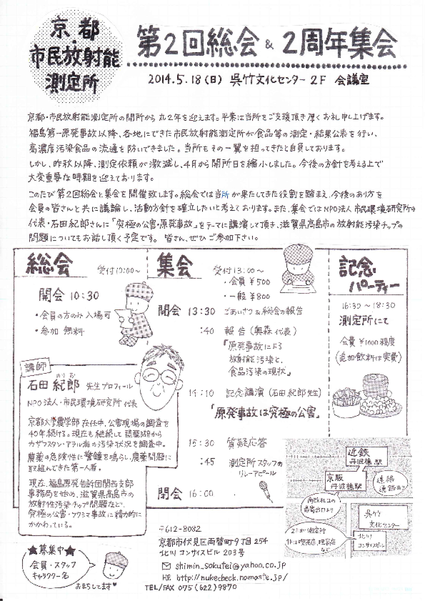 京都・
市民放射能
測定所
第2回総会 & 2周年集会
2014.5.18(日) 呉竹文化センター 2F 会議室
京都・市民放射能測定所の開所から丸2年を迎えます。平素は当所をご支援頂き厚くお礼申し上げます。
福島第一原発事故以降、各地にできた市民放射能測定所が食品等の測定・結果公表を行い、
高濃度汚染食品の流通を防いできました。当所もその一翼を担ってきたと自負しております。
しかし、昨秋以降、測定依頼が激減し、4月から開所日を縮小しました。今後の方針を考える上で
大変重要な時期を迎えております。
このたび第2回総会と集会を開催致します。総会では当所が果たしてきた役割を踏まえ、今後のあり方を
会員の皆さんと共に議論し、活動方針を確立したいと考えております。また、集会ではNPO法人 市民環境研究所の
代表・石田紀郎さんに「究極の公害・原発事故」をテーマに講演して頂き、滋賀県高島市の放射能汚染チップの
問題についてもお話し頂く予定です。皆さん、ぜひご参加下さい。
総会
受付 10:00〜
開会 10:30
・会員の方のみ入場可
・参加 無料
集会
受付 13:00〜
・会員 ¥500
・一般 ¥800
開会 13:30 ごあいさつ & 総会の報告
:40 報告(奥森代表)
「原発事故による
放射能汚染と、
食品汚染の現状」
14:10 記念講演(石田紀郎先生)
「原発事故は究極の公害」
15:30 質疑応答
:45 測定所スタッフの
リレーアピール
閉会 16:00
記念
パーティー
16:30〜18:30
測定所にて
会費 ¥1000程度
(追加飲料は実費)
講師
石田 紀郎 先生プロフィール
NPO法人・市民環境研究所 代表
京都大学農学部在任中、公害現場の調査を
40年続ける。現在も継続して琵琶湖から
カザフスタン・アラル海の汚染状況を調査中。
農薬の危険性に警鐘を鳴らし、農薬問題に
取組んできた第一人者。
現在、福島原発告訴団関西支部
事務局を始め、滋賀県高島市の
放射性汚染チップ問題など、
究極の公害・フクシマ事故に精力的に
かかわっている。
★募集中★
会員・スタッフ
キャラクター名
おまちしてます
近鉄
丹波橋駅
京阪
丹波橋駅
連絡
通路あり
呉竹
文化センター
〒612-8082
京都市伏見区両替町9丁目254
北川コンサイスビル 203号
shimin_sokutei@yahoo.co.jp
http://nukecheck.namaste.jp/
TEL/FAX 075(622)9870